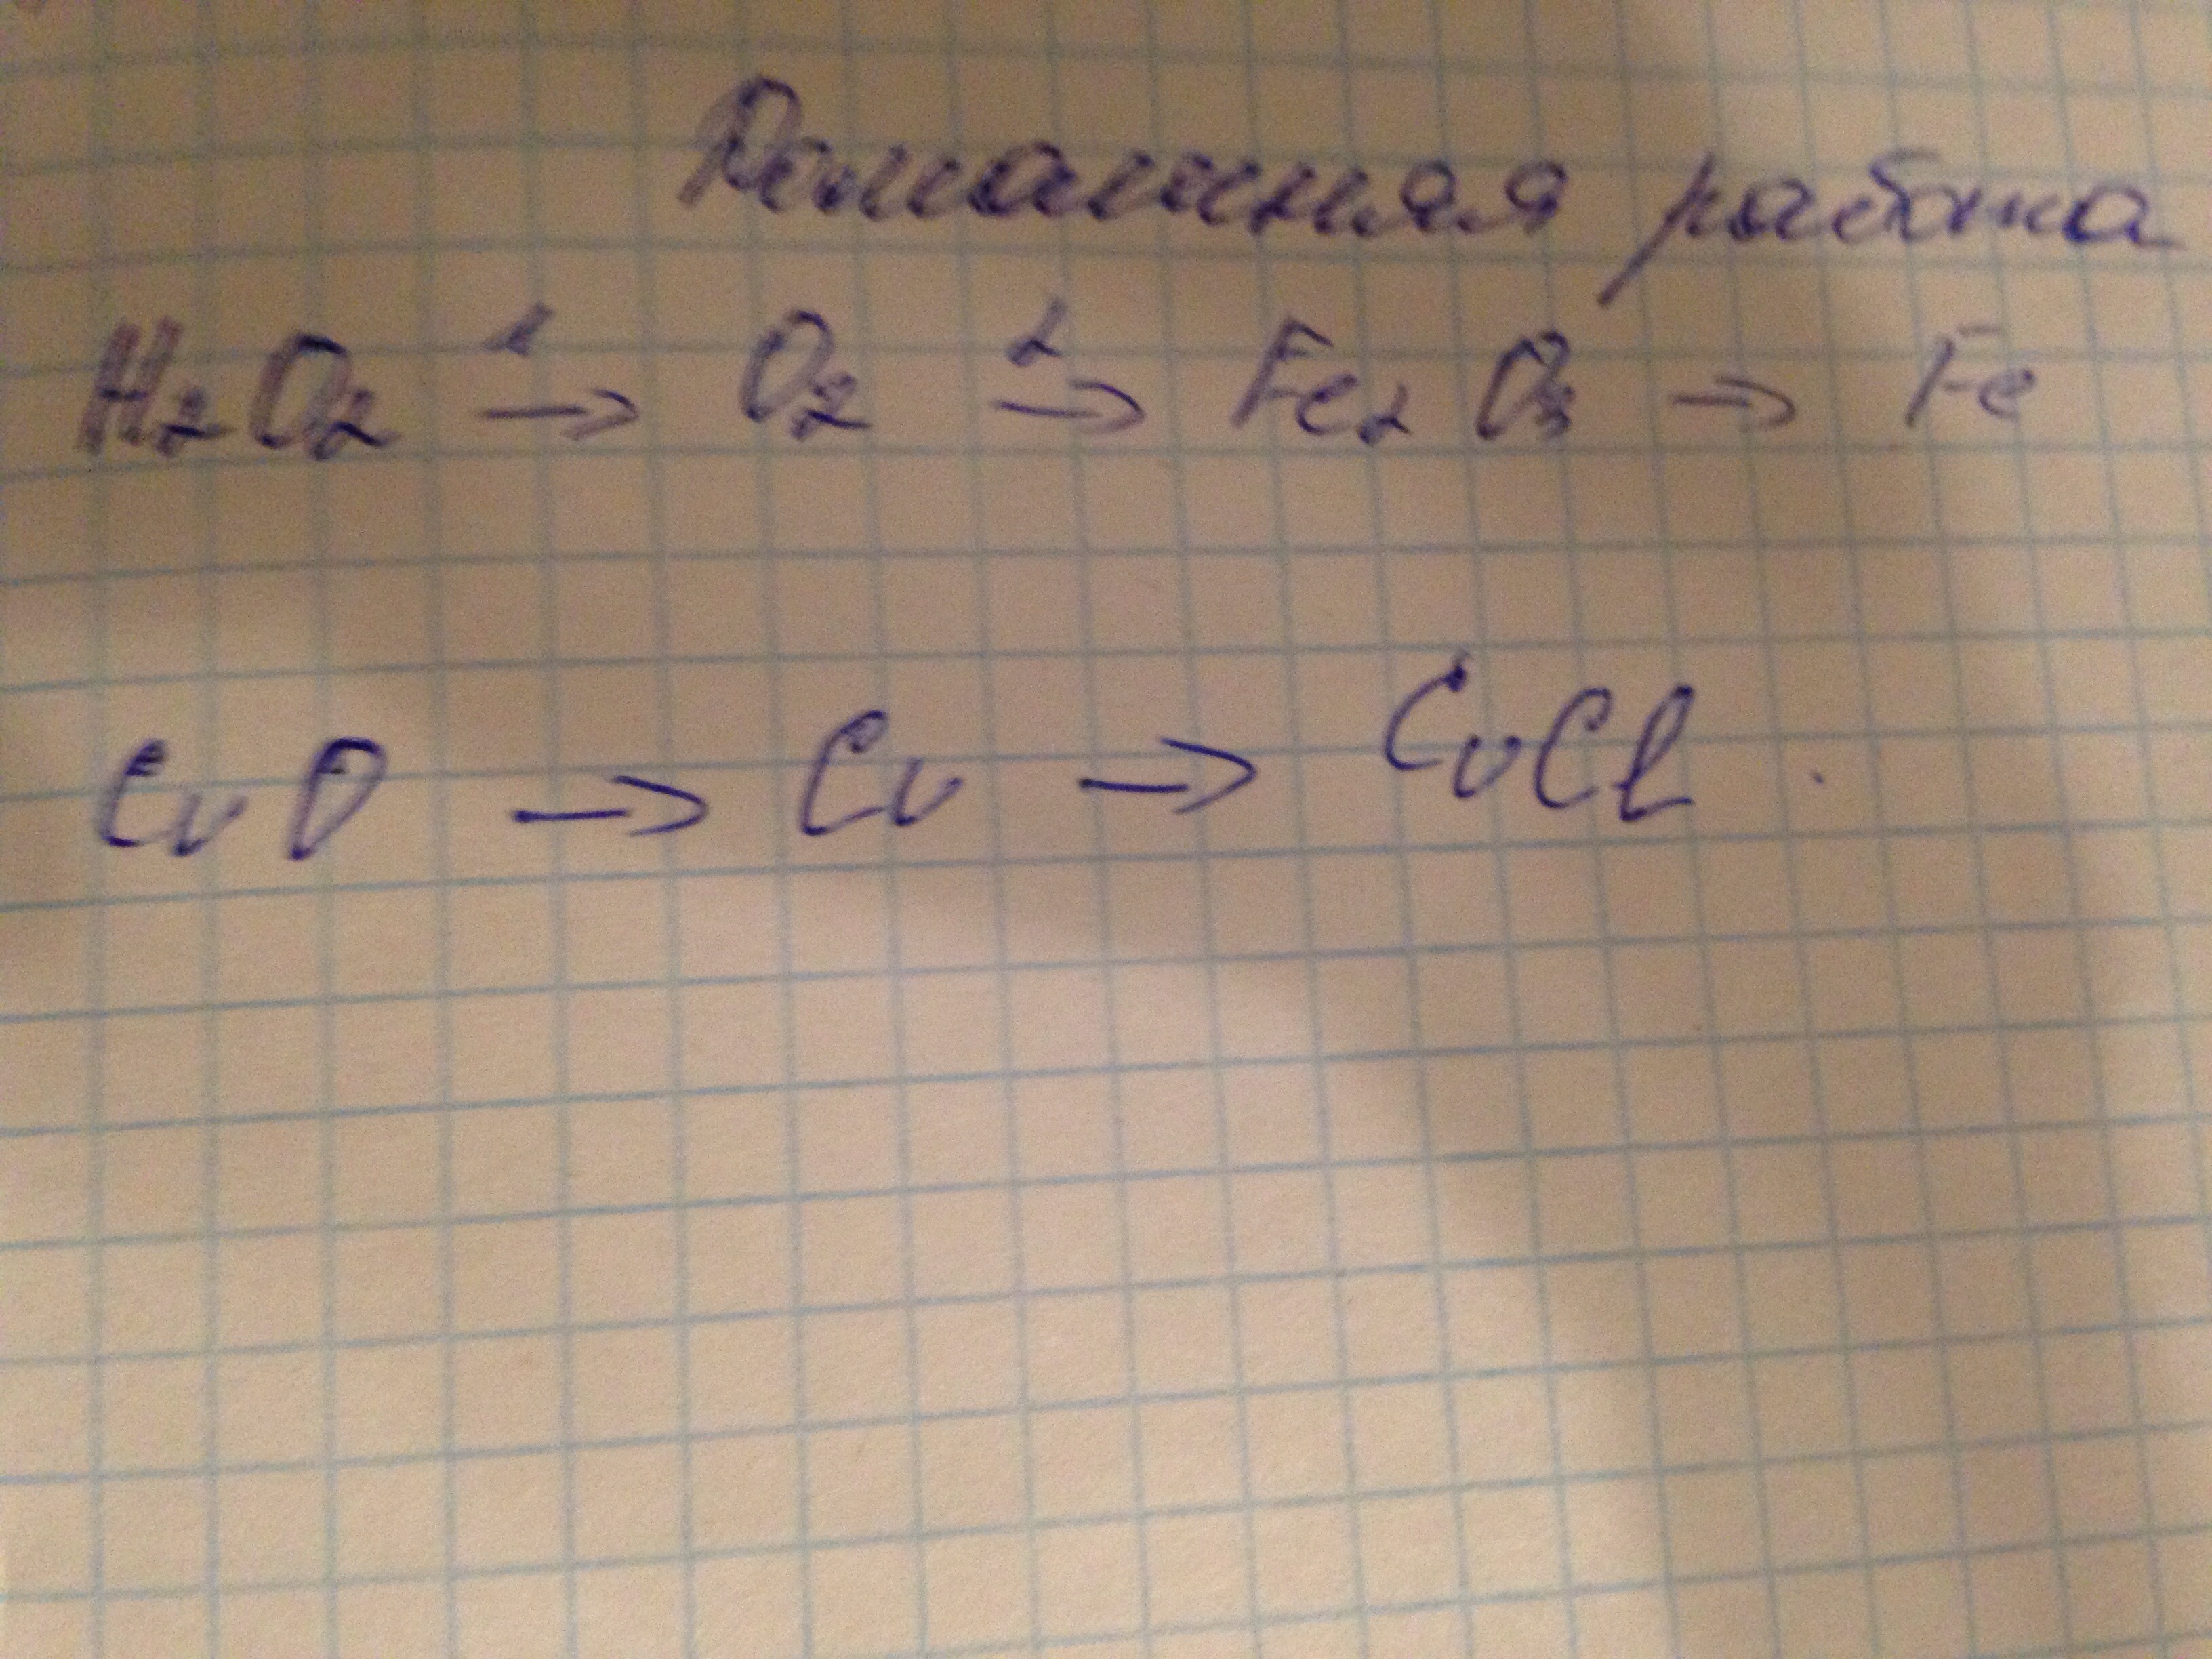 Домашняя работа
H₂O₂ →¹ O₂ →² Fe₂O₃ → Fe
CuO → Cu → CuCl.